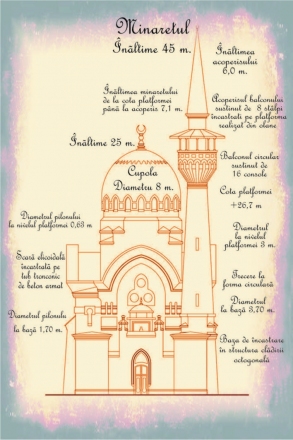 Minaretul
Înălțime 45 m.
Înălțimea
acoperisului
6,0 m.
Înălțimea minaretului
de la cota platformei
până la acoperis 7,1 m.
Acoperisul balconului
sustinut de 8 stâlpi
încastrati pe platforma
realizat din olane
Înălțime 25 m.
Cupola
Diametru 8 m.
Balconul circular
sustinut de
16 console
Cota platformei
+26,7 m
Diametrul pilonului
la nivelul platformei 0,63 m
Diametrul
la nivelul
platformei 3 m.
Scară elicoidală
încastrată pe
tub tronconic
de beton armat
Trecere la
forma circulară
Diametrul
la bază 3,70 m.
Diametrul pilonulu
la bază 1,70 m.
Baza de încastrare
în structura clădirii
octogonală